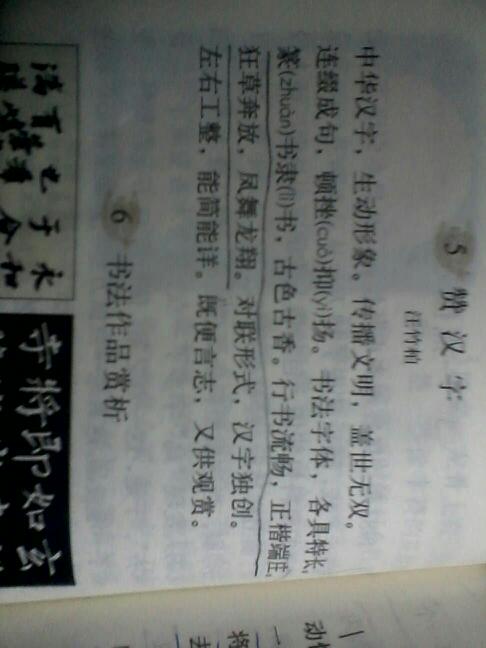 5 赞汉字
汪竹柏
中华汉字，生动形象。传播文明，盖世无双。
连缀成句，顿挫(cuò)抑(yì)扬。书法字体，各具特长，
篆(zhuàn)书隶(lì)书，古色古香。行书流畅，正楷端庄，
狂草奔放，凤舞龙翔。对联形式，汉字独创。
左右工整，能简能详。既便言志，又供观赏。
6 书法作品赏析